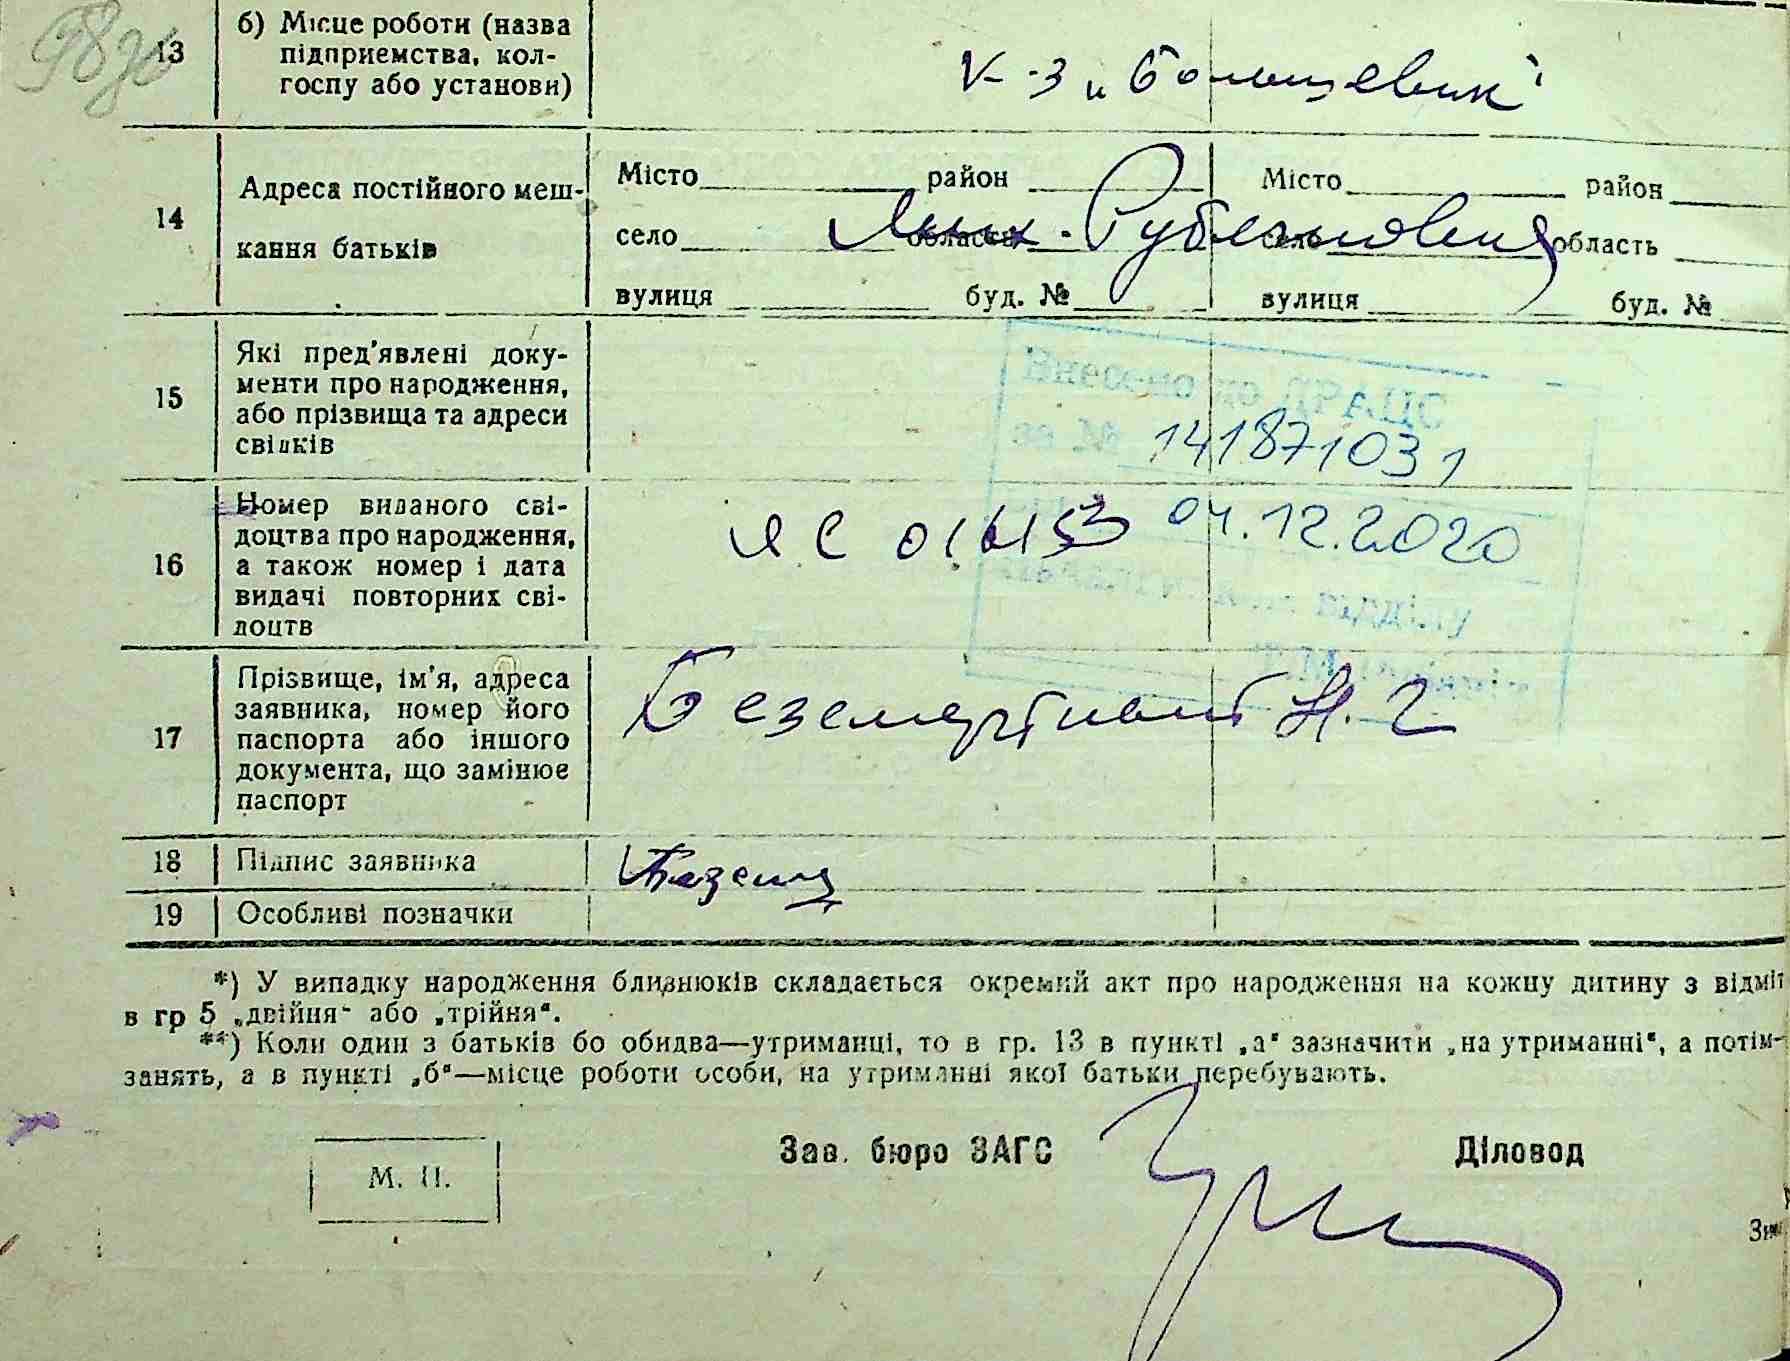 13 б) Місце роботи (назва
підприемства, кол-
госпу або установи)
к-з „Большевик"
14 Адреса постійного меш-
кання батьків
Місто район Місто район
село область село область
вулиця буд. № вулиця буд. №
15 Які пред'явлені доку-
менти про народження,
або прізвища та адреси
свідків
Внесено до ДРАЦС
за № 141871031
16 Номер виданого сві-
доцтва про народження,
а також номер і дата
видачі повторних сві-
доцтв
ЯС
04.12.2020
відділу
17 Прізвище, ім'я, адреса
заявника, номер його
паспорта або іншого
документа, що замінює
паспорт
18 Підпис заявника
19 Особливі позначки
*) У випадку народження близнюків складається окремий акт про народження на кожну дитину з відмі
в гр 5 „двійня" або „трійня".
**) Коли один з батьків бо обидва—утриманці, то в гр. 13 в пункті „а" зазначити „на утриманні", а потім-
занять, а в пункті „б"—місце роботи особи, на утриманні якої батьки перебувають.
М. П.
Зав. бюро ЗАГС
Діловод